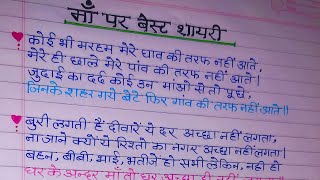 माँ पर बेस्ट शायरी
कोई भी मरहम मेरे घाव की तरफ नहीं आते,
मेरे ही छाले मेरे पांव की तरफ नहीं आते।
जुदाई का दर्द कोई उन माँओ से तो पूछे,
जिनके शहर गये बेटे फिर गांव की तरफ नहीं आते॥
बुरी लगती हैं दीवारें ये दर अच्छा नहीं लगता,
ना जाने क्यों ये रिश्तो का नगर अच्छा नहीं लगता।
बहन, बीबी, भाई, भतीजे हो सभी लेकिन, नहीं हो
घर के अन्दर माँ तो घर अच्छा नहीं